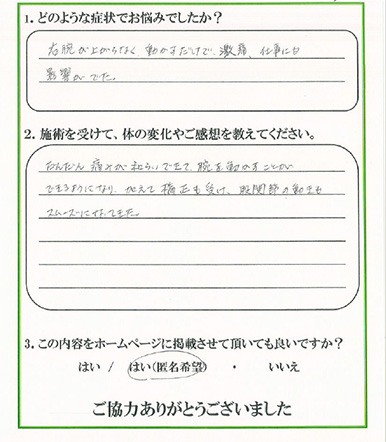 1. どのような症状でお悩みでしたか？
右腕が上がらなく動かすだけで激痛、仕事にも
影響がでた。
2. 施術を受けて、体の変化やご感想を教えてください。
だんだん痛みが和らいできて、腕を動かすことが
できるようになり、加えて矯正も受け、股関節の動きも
スムーズになってきた。
3. この内容をホームページに掲載させて頂いても良いですか？
はい / はい(匿名希望) ・ いいえ
ご協力ありがとうございました